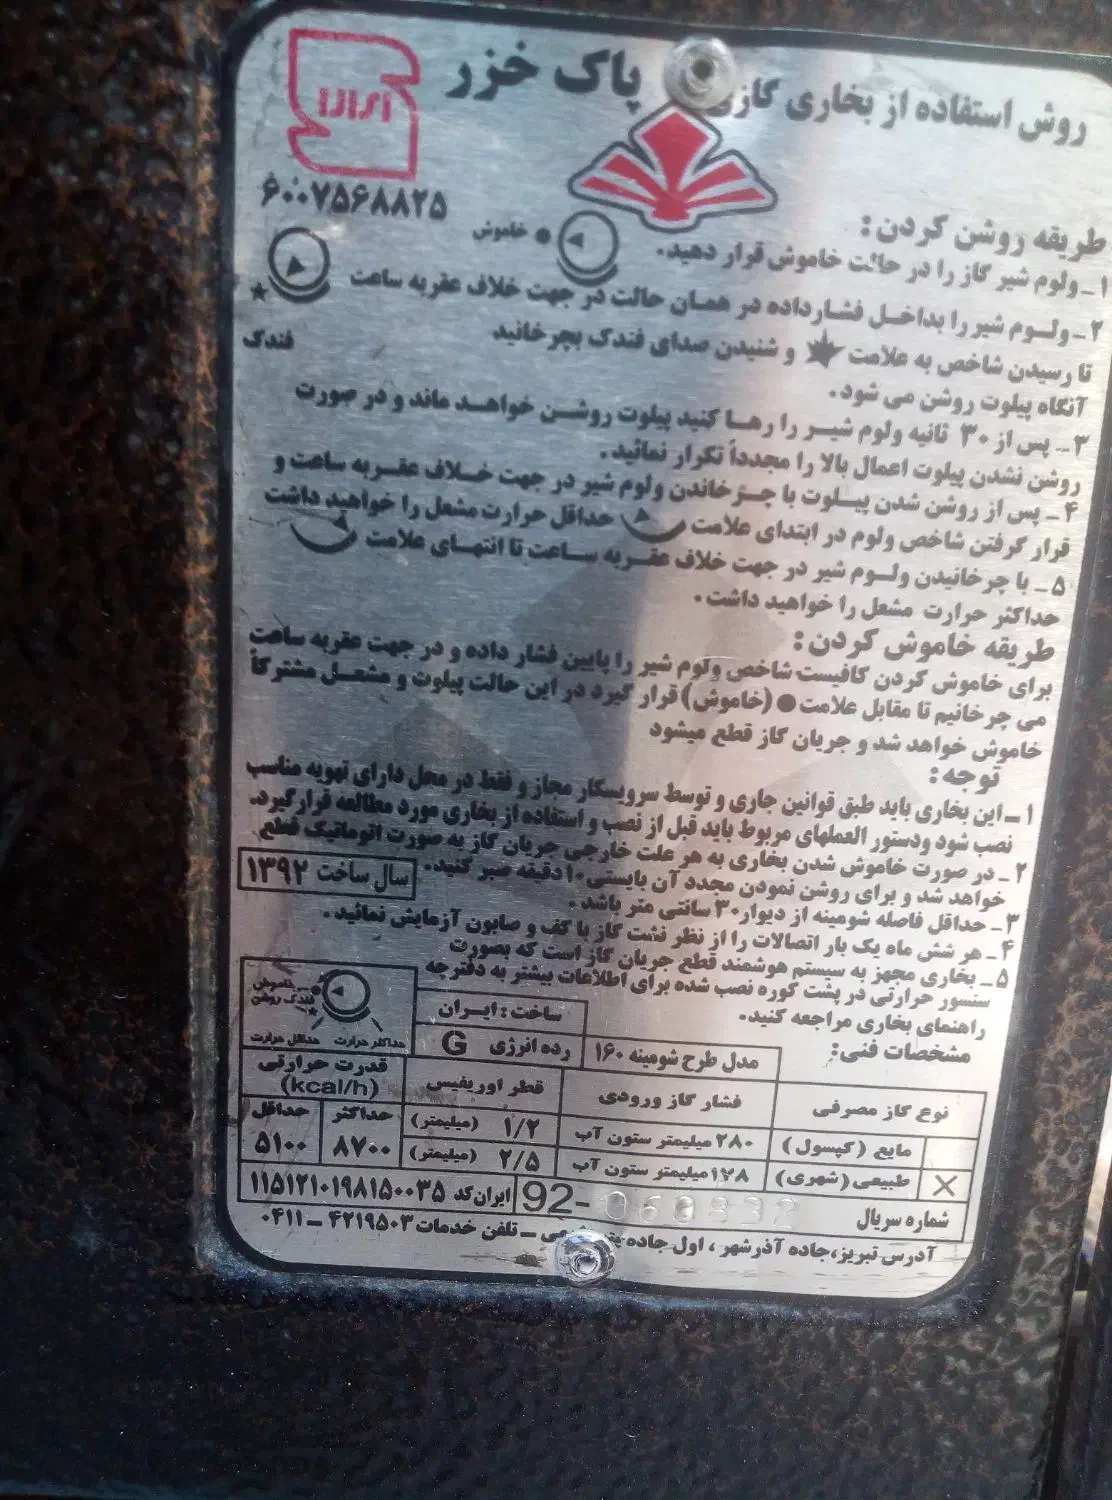 روش استفاده از بخاری گازی پاک خزر
ایران
۶۰۰۷۵۶۸۸۲۵
طریقه روشن کردن:
۱ـ ولوم شیر گاز را در حالت خاموش قرار دهید.
خاموش
۲ـ ولوم شیر را بداخل فشار داده در همان حالت در جهت خلاف عقربه ساعت
تا رسیدن شاخص به علامت و شنیدن صدای فندک بچرخانید
فندک
آنگاه پیلوت روشن می شود.
۳ـ پس از ۳۰ ثانیه ولوم شیر را رها کنید پیلوت روشن خواهد ماند و در صورت
روشن نشدن پیلوت اعمال بالا را مجدداً تکرار نمائید.
۴ـ پس از روشن شدن پیلوت با چرخاندن ولوم شیر در جهت خلاف عقربه ساعت و
قرار گرفتن شاخص ولوم در ابتدای علامت حداقل حرارت مشعل را خواهید داشت
۵ـ با چرخانیدن ولوم شیر در جهت خلاف عقربه ساعت تا انتهای علامت
حداکثر حرارت مشعل را خواهید داشت.
طریقه خاموش کردن:
برای خاموش کردن کافیست شاخص ولوم شیر را پایین فشار داده و در جهت عقربه ساعت
می چرخانیم تا مقابل علامت ● (خاموش) قرار گیرد در این حالت پیلوت و مشعل مشترکاً
خاموش خواهد شد و جریان گاز قطع میشود
توجه:
۱ـ این بخاری باید طبق قوانین جاری و توسط سرویسکار مجاز و فقط در محل دارای تهویه مناسب
نصب شود ودستور العملهای مربوط باید قبل از نصب و استفاده از بخاری مورد مطالعه قرارگیرد.
۲ـ در صورت خاموش شدن بخاری به هر علت خارجی جریان گاز به صورت اتوماتیک قطع
خواهد شد و برای روشن نمودن مجدد آن بایستی ۱۰ دقیقه صبر کنید.
سال ساخت ۱۳۹۲
۳ـ حداقل فاصله شومینه از دیوار ۳۰ سانتی متر باشد.
۴ـ هر شش ماه یک بار اتصالات را از نظر نشت گاز با کف و صابون آزمایش نمائید.
۵ـ بخاری مجهز به سیستم هوشمند قطع جریان گاز است که بصورت
سنسور حرارتی در پشت کوره نصب شده برای اطلاعات بیشتر به دفترچه
راهنمای بخاری مراجعه کنید.
خاموش
فندک روشن
حداکثر حرارت حداقل حرارت
مشخصات فنی:
ساخت: ایران
مدل طرح شومینه ۱۶۰ رده انرژی G
نوع گاز مصرفی فشار گاز ورودی قطر اوریفیس قدرت حرارتی (kcal/h)
حداکثر حداقل
مایع (کپسول) ۲۸۰ میلیمتر ستون آب ۱/۲ (میلیمتر)
X طبیعی (شهری) ۱۷۸ میلیمتر ستون آب ۲/۵ (میلیمتر) ۸۷۰۰ ۵۱۰۰
شماره سریال 92- ایران کد ۱۱۵۱۲۱۰۱۹۸۱۵۰۰۳۵
آدرس تبریز، جاده آذرشهر، اول جاده ـ تلفن خدمات ۴۲۱۹۵۰۳ ـ ۰۴۱۱